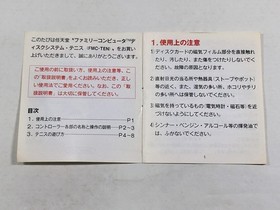 このたびは任天堂 "ファミリーコンピュータ™デ
ィスクシステム・テニス（FMC-TEN）をお買い
上げいただきまして、誠にありがとうございます。
ご使用の前に取扱い方、使用上の注意等、こ
の「取扱説明書」をよくお読みいただき、正し
い使用法でご愛用ください。なお、この「取
扱説明書」は大切に保管してください。
目次
1. 使用上の注意 P1
2. コントローラー各部の名称と操作の説明 P2~3
3. テニスの遊び方 P4~8
1. 使用上の注意
①ディスクカードの磁気フィルム部分を直接触れ
たり、汚したり、また傷をつけたりしないでくだ
さい。故障の原因となります。
②直射日光の当る所や熱器具（ストーブやポット）
等の近く、また、湿気の多い所、ホコリやチリ
の多い所へは保管しないでください。
③磁気を持っているもの（電気時計・磁石等）を近
づけないようにしてください。
④シンナー・ベンジン・アルコール等の揮発油で
は、ふかないでください。
1